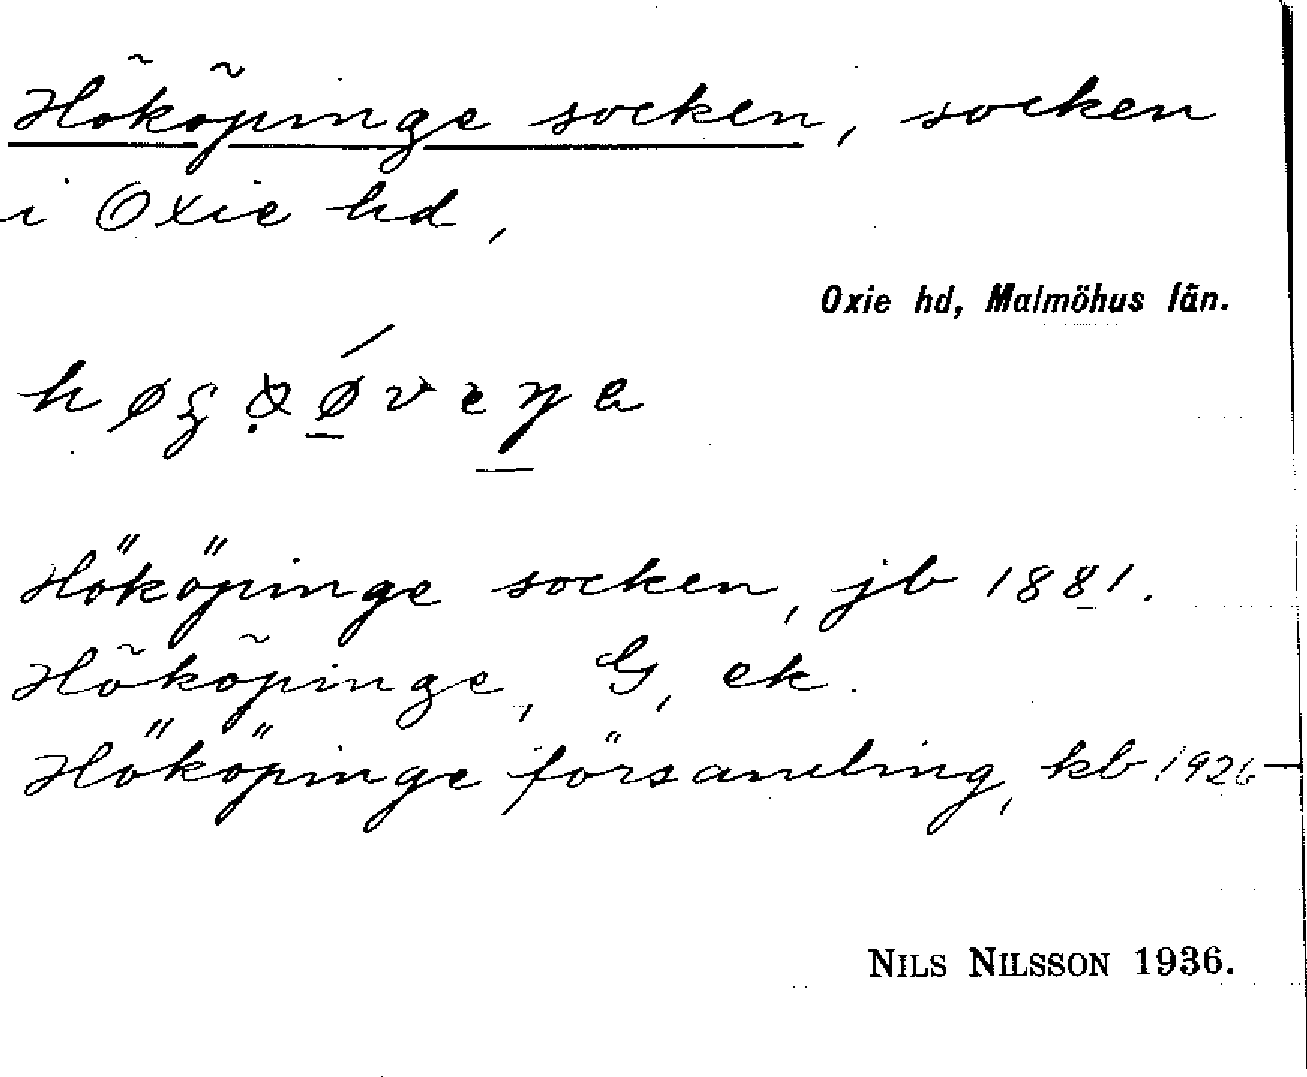 Hököpinge socken, socken
i Oxie hd,
Oxie hd, Malmöhus län.
Hököpinge socken, jb 1881.
Hököpinge, G, ek.
Hököpinge församling, kb 1926–
NILS NILSSON 1936.